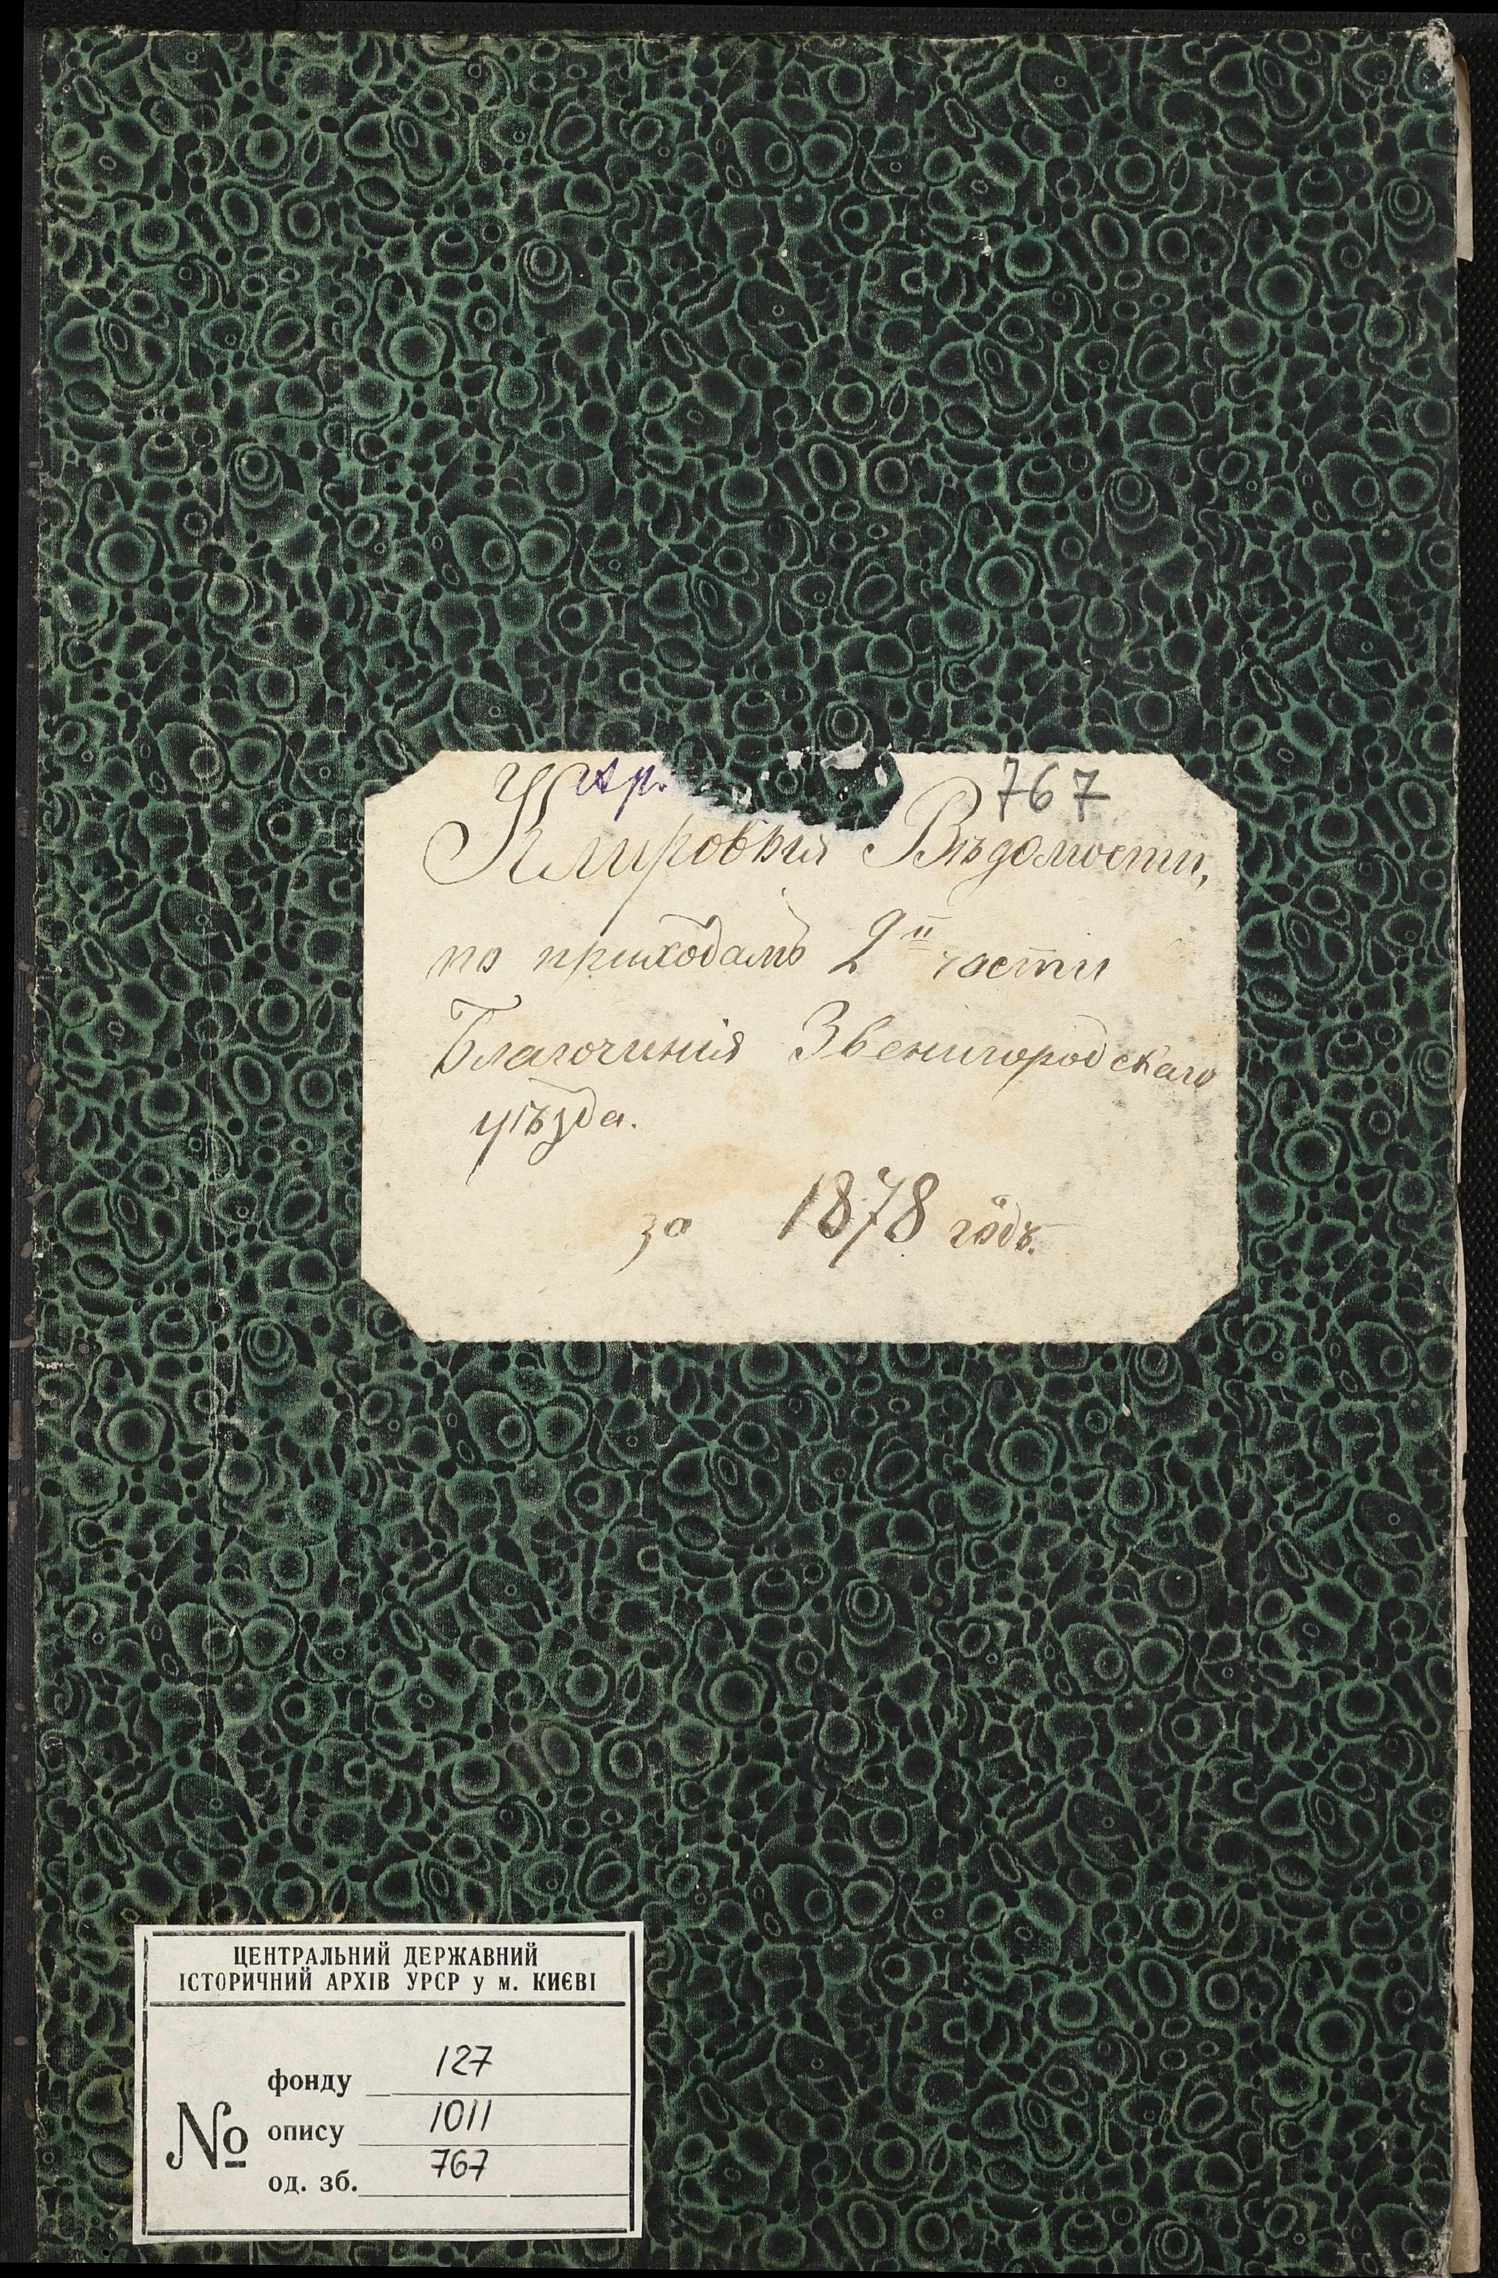 Стр.
767
Клировыя Вѣдомости,
по приходамъ 2й части
Благочинія Звенигородскаго
уѣзда.
за 1878 годъ.
ЦЕНТРАЛЬНИЙ ДЕРЖАВНИЙ
ІСТОРИЧНИЙ АРХІВ УРСР у м. КИЄВІ
№
фонду 127
опису 1011
од. зб. 767